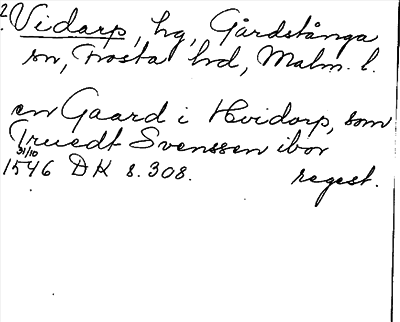 2. Vidarp, hg, Gårdstånga
sn, Frosta hd, Malm. l.
en Gaard i Hvidorp, som
Truedt Svenssen ibor
31/10
1546 DK s. 308. regest.